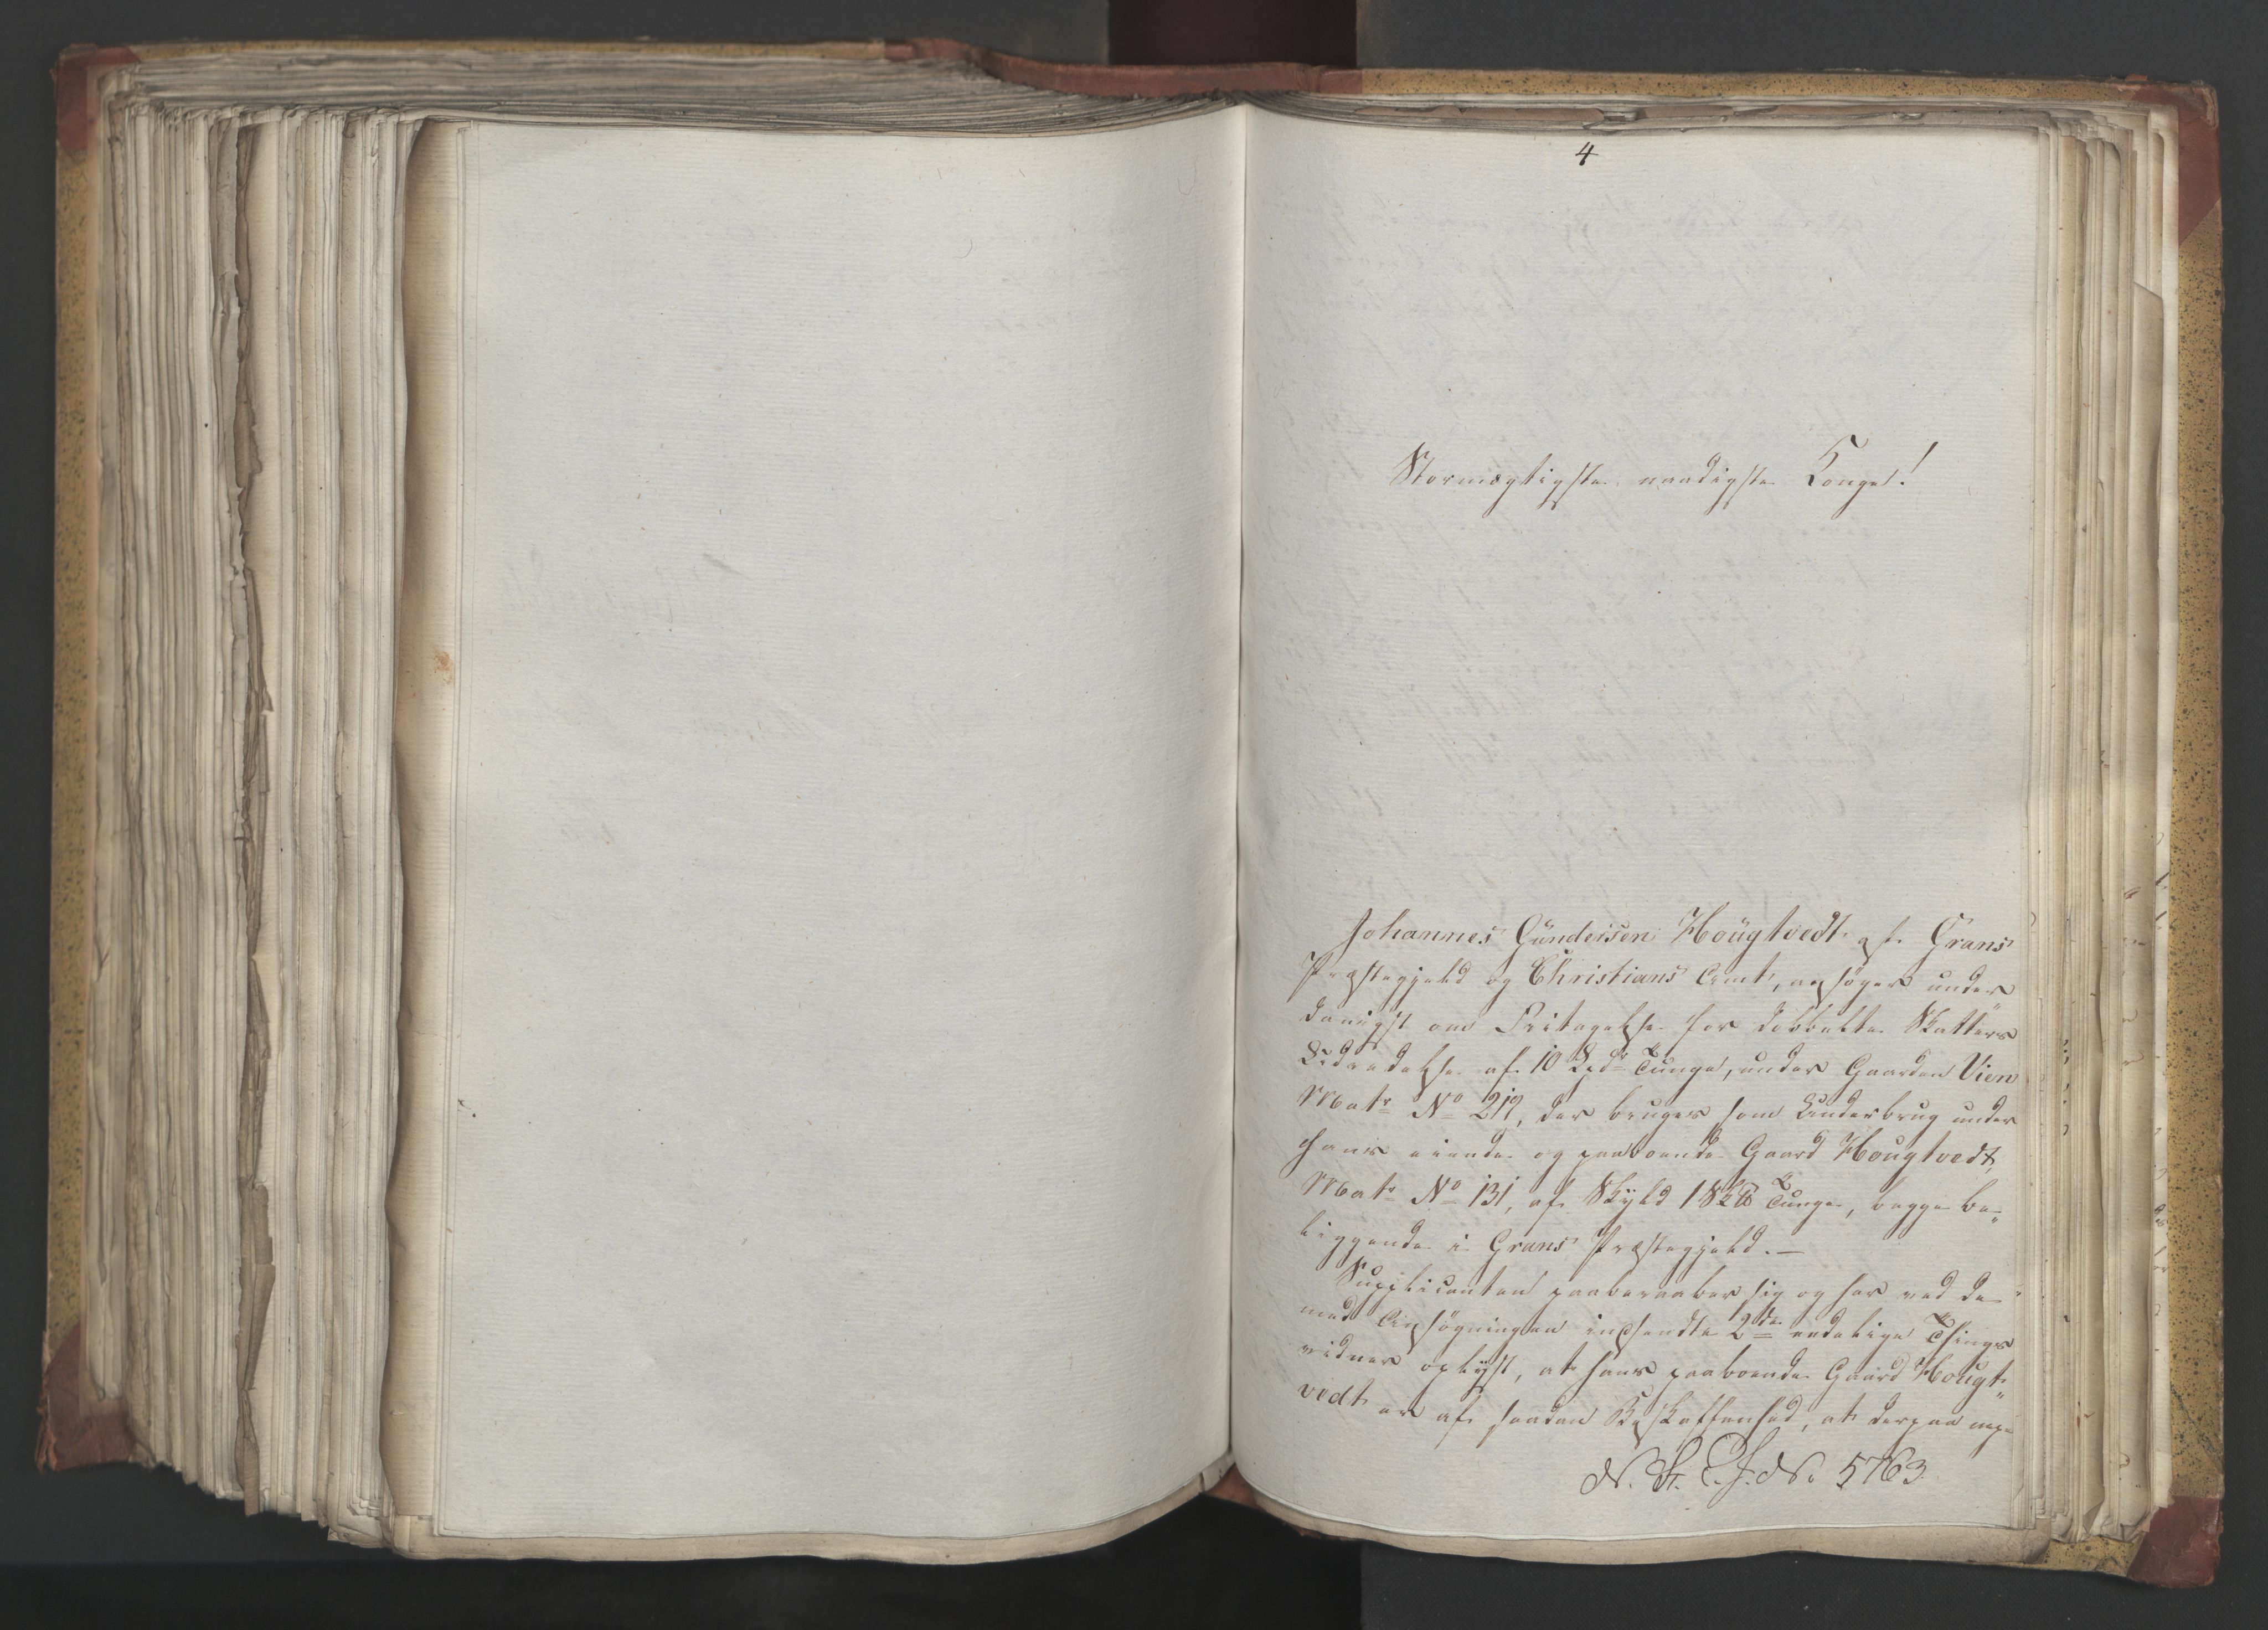 4
Stormægtigste naadigste Konge!
Johannes Gündersen Hoügtvedt af Grans
Præstegjeld og Christians Amt, ansøger under
danigst om Fritagelse for dobbelte Skatters
Udredelse af 10 Tunge, under Gaarden Vien
Matr No 219, der bruges som Underbrug under
hans eiende og paaboende Gaard Hougtvedt,
Matr No 131, af Skyld Tunge, begge be„
liggende i Grans Præstegjeld. —
Supplicanten paaberaaber sig og har ved de
med Ansøgningen indsendte 2de endelige Things„
vidner oplyst, at hans paaboende Gaard Hougt„
vedt er af saadan Beskaffenhed, at derpaa
No 5763.